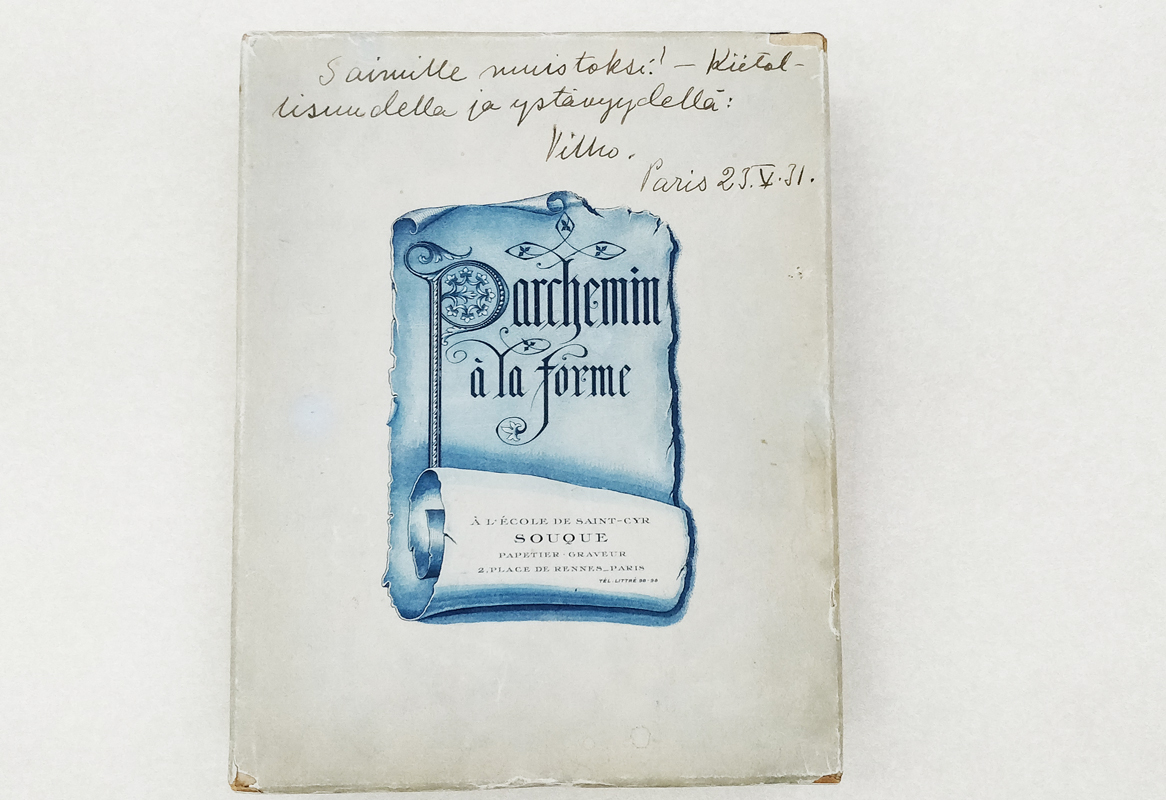 Saimille muistoksi! – Kiitol-
lisuudella ja ystävyydellä:
Vilho.
Paris 23.V.31.
Parchemin
à la forme
À L'ÉCOLE DE SAINT-CYR
SOUQUE
PAPETIER-GRAVEUR
2, PLACE DE RENNES_PARIS
TÉL. LITTRÉ 98-98